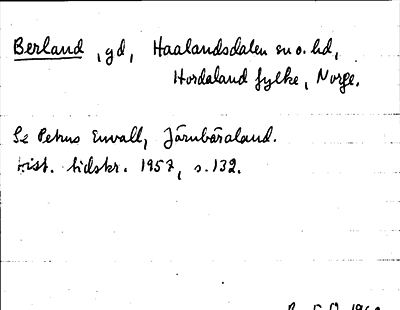 Berland, gd, Haalandsdalen sn o. hd,
Hordaland fylke, Norge.
Se Petrus Envall, Järnbäraland.
Hist. tidskr. 1957, s. 132.